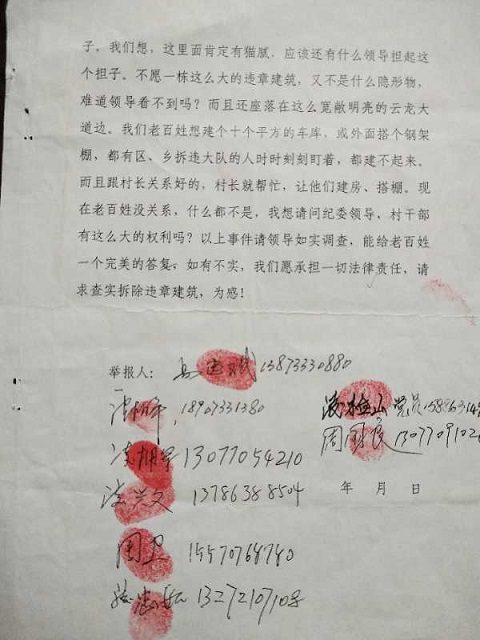 子。我们想，这里面肯定有猫腻，应该还有什么领导担起这
个担子。不愿一栋这么大的违章建筑，又不是什么隐形物，
难道领导看不到吗？而且还座落在这么宽敞明亮的云龙大
道边。我们老百姓想建个十个平方的车库，或外面搭个钢架
棚，都有区、乡拆违大队的人时时刻刻盯着，都建不起来。
而且跟村长关系好的，村长就帮忙，让他们建房、搭棚。现
在老百姓没关系，什么都不是，我想请问纪委领导，村干部
有这么大的权利吗？以上事件请领导如实调查，能给老百姓
一个完美的答复，如有不实，我们愿承担一切法律责任，请
求查实拆除违章建筑，为感！
举报人： 13873330880
18907331380
党员
周国良
13077054210
年 月 日
13786388504
周卫 15570768780
13272107108